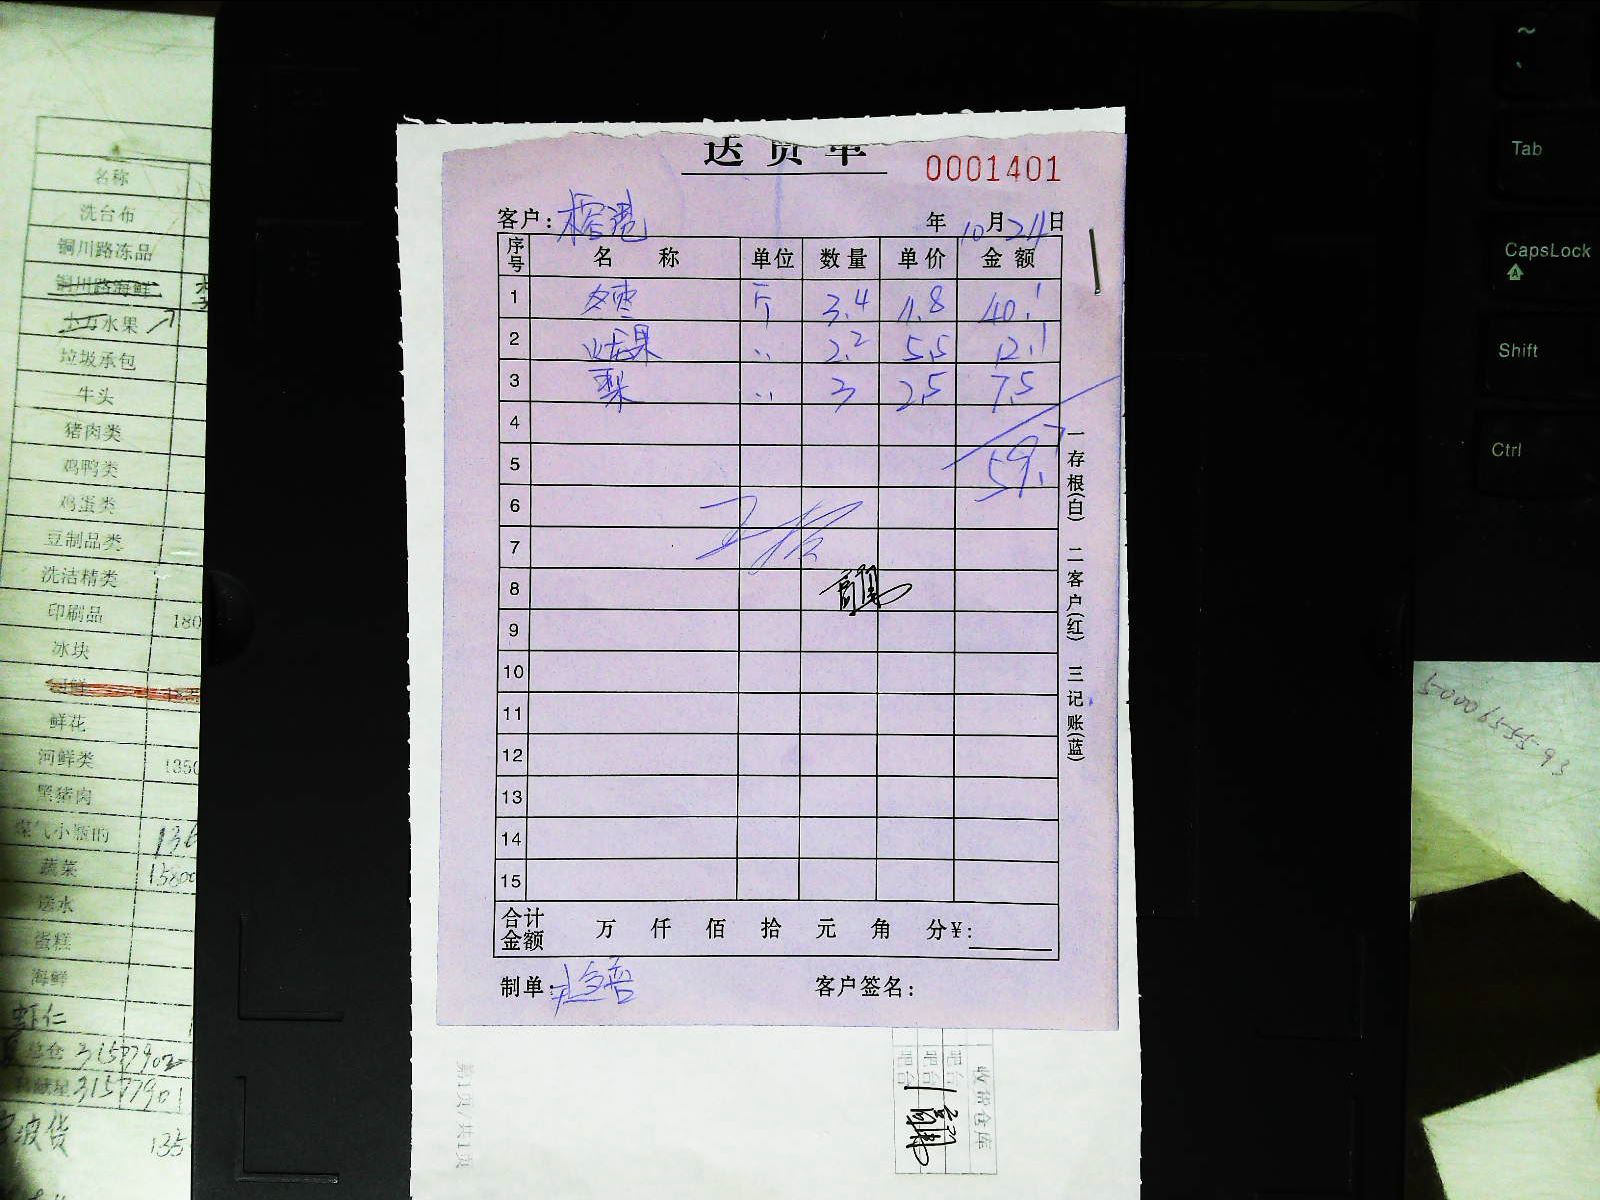 送货单
0001401
客户: 榕港 年 10 月 24 日
序号 名称 单位 数量 单价 金额
1 冬枣 斤 3.4 11.8 40.1
2 火龙果 〃 2.2 5.5 12.1
3 梨 〃 3 2.5 7.5
4
5 59.7
6
7
8
9
10
11
12
13
14
15
合计金额 万 仟 佰 拾 元 角 分¥:
制单: 客户签名:
一存根(白) 二客户(红) 三记账(蓝)
名称
洗台布
铜川路冻品
铜川路海鲜
水果
垃圾承包
牛头
猪肉类
鸡鸭类
鸡蛋类
豆制品类
洗洁精类
印刷品 180
冰块
鲜花
河鲜类 1350
黑猪肉
煤气小瓶的 136
蔬菜 15800
送水
蛋糕
海鲜
虾仁
31587902
31577901
宁波货 135
~
、
Tab
CapsLock
Shift
Ctrl
第1页/共1页
收货仓库
吧台
吧台
吧台